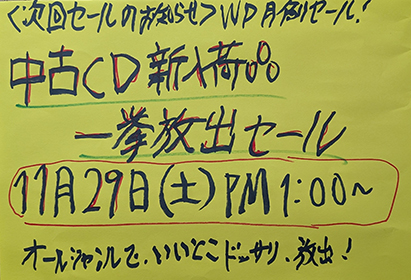 〈次回セールのお知らせ〉WD月例セール!
中古CD新入荷品
一挙放出セール
11月29日(土)PM1:00~
オールジャンルで、いいとこドッサリ、放出!